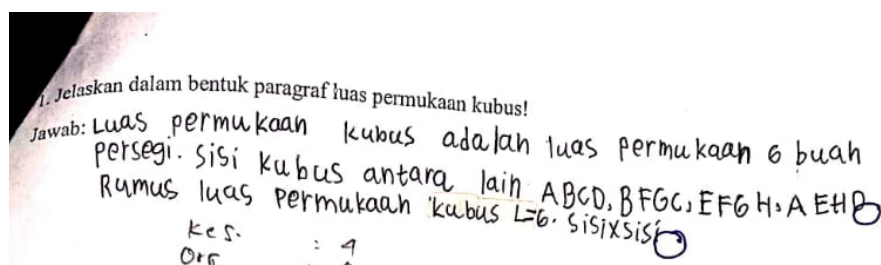 1. Jelaskan dalam bentuk paragraf luas permukaan kubus!
Jawab: Luas permukaan kubus adalah luas permukaan 6 buah
persegi. Sisi kubus antara lain ABCD, BFGC, EFGH, AEHD
Rumus luas permukaan kubus L=6. sisixsisi
Kes. : 4
Org